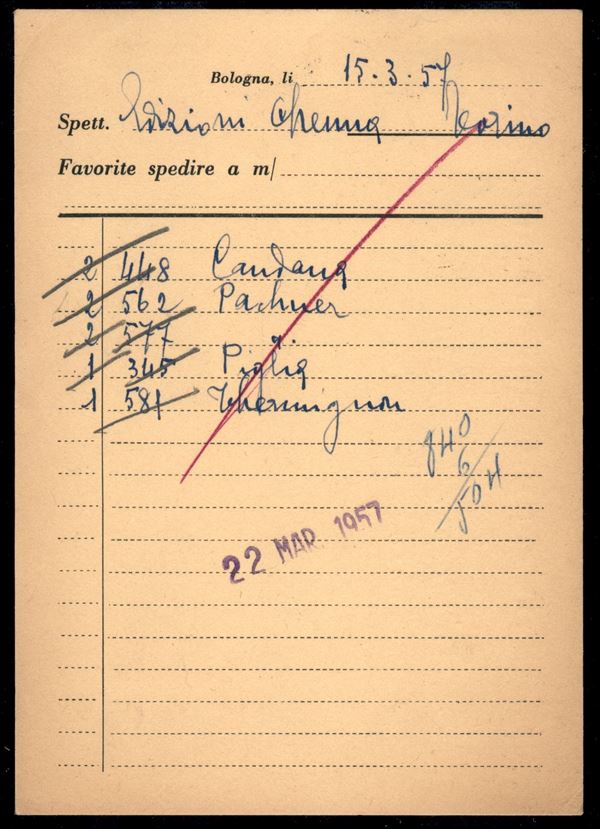 Bologna, li 15.3.57
Spett. Edizioni Chenna Torino
Favorite spedire a m/
2 448 Candana
2 562 Pachner
2 577 "
1 345 Piglia
1 581 Thermignon
840
6
504
22 MAR. 1957